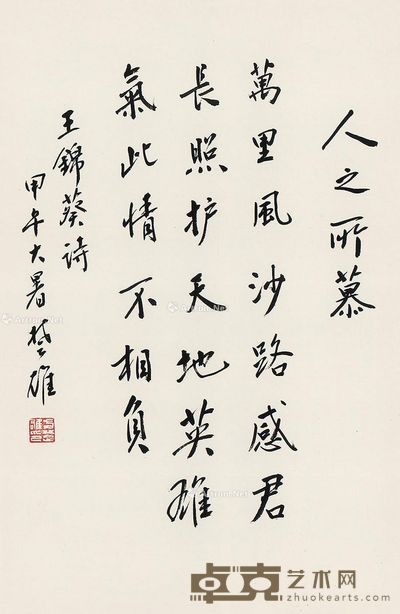 人之所慕
萬里風沙路感君
長照护天地英雄
氣此情不相負
王錦葵诗
甲午大暑楚雄
卓克艺术网
zhuokearts.com